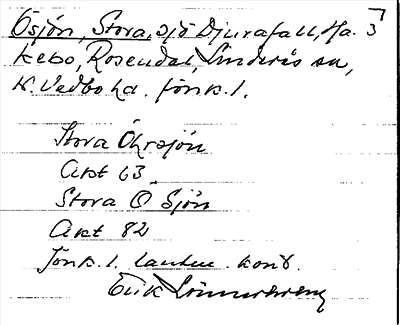 Ösjön, Stora, sjö Djurafall, Ha. 3
kebo, Rosendal, Linderås sn,
N. Vedbo hd. Jönk. l.
Stora Öhrsjön
Akt 63
Stora Ö Sjön
Akt 82
Jönk. l. lantm. kont.
Erik